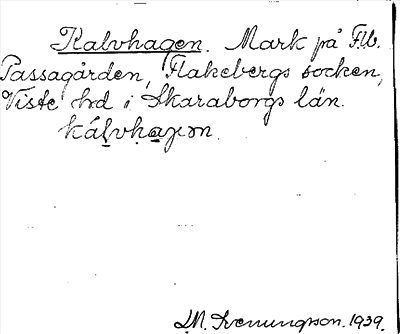 Kalvhagen. Mark på Flb.
Passagården, Flakebergs socken,
Viste hd i Skaraborgs län.
kálvhaɡən.
Svenungson. 1939.